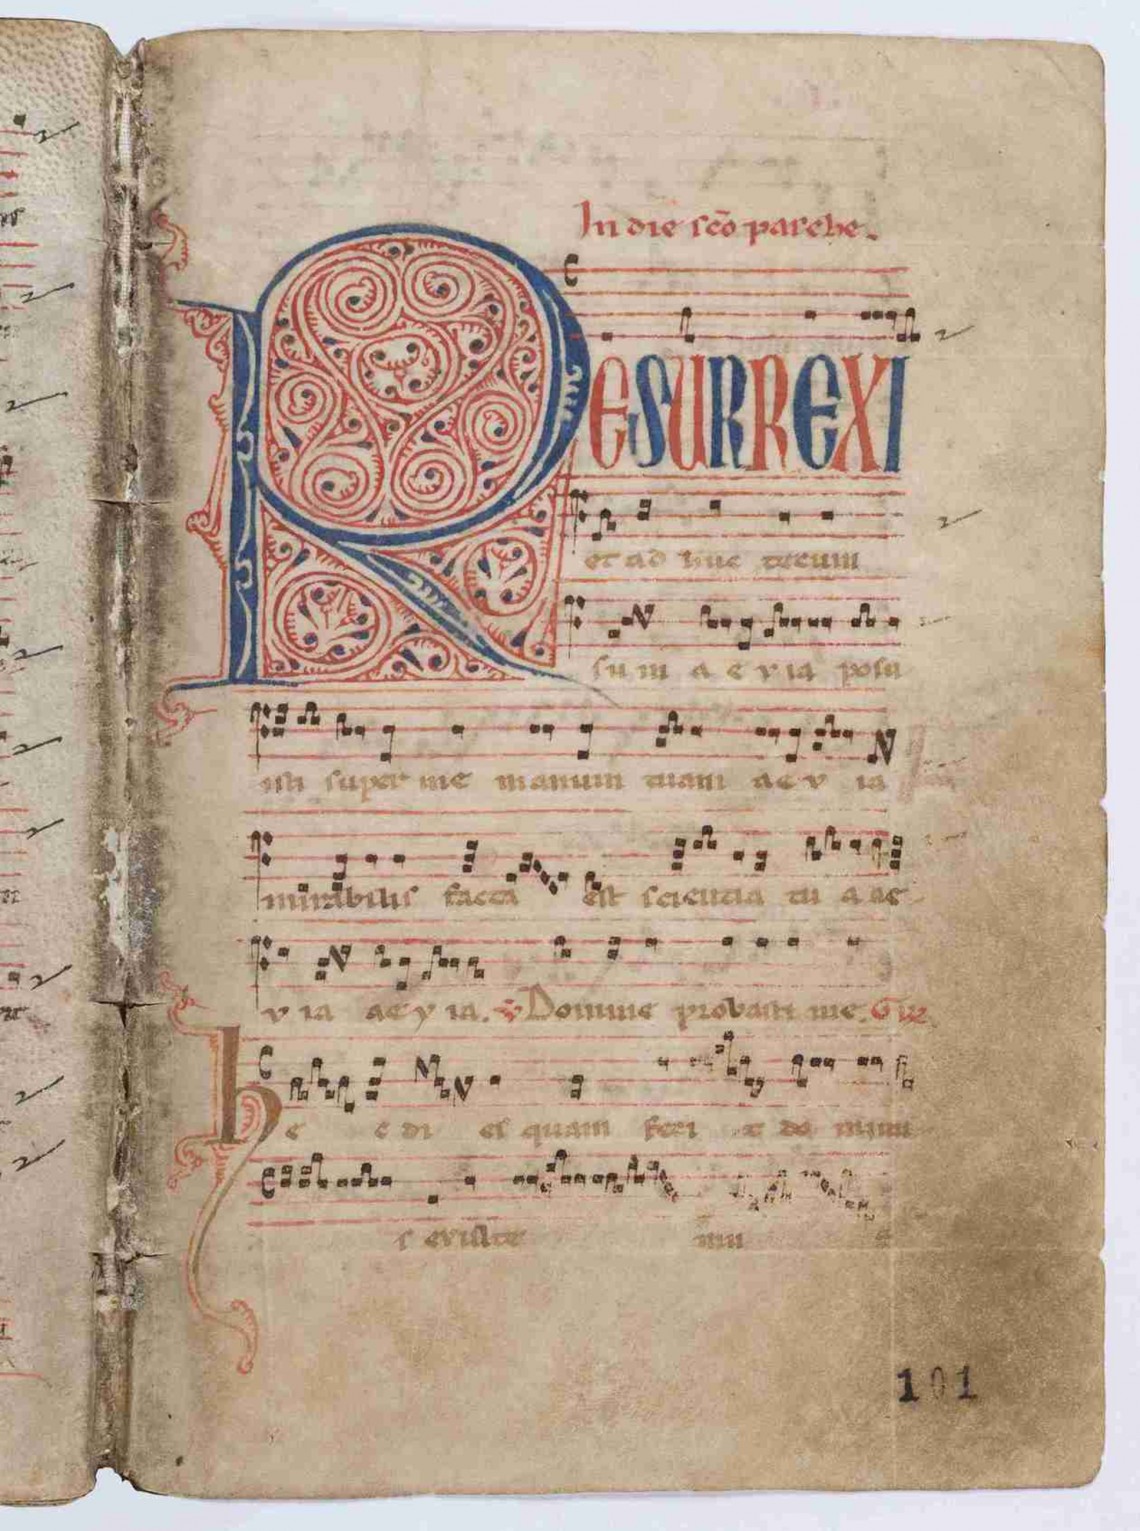 In die sc̄o pasche.
RESURREXI
et ad huc tecum
sum a e v ia posu
isti super me manum tuam ae v ia
mirabilis facta est scientia tu a ae
v ia ae v ia. ℣ Domine probasti me. Gr̄
He c di es quam feci t do minu
s exulte mu s
101